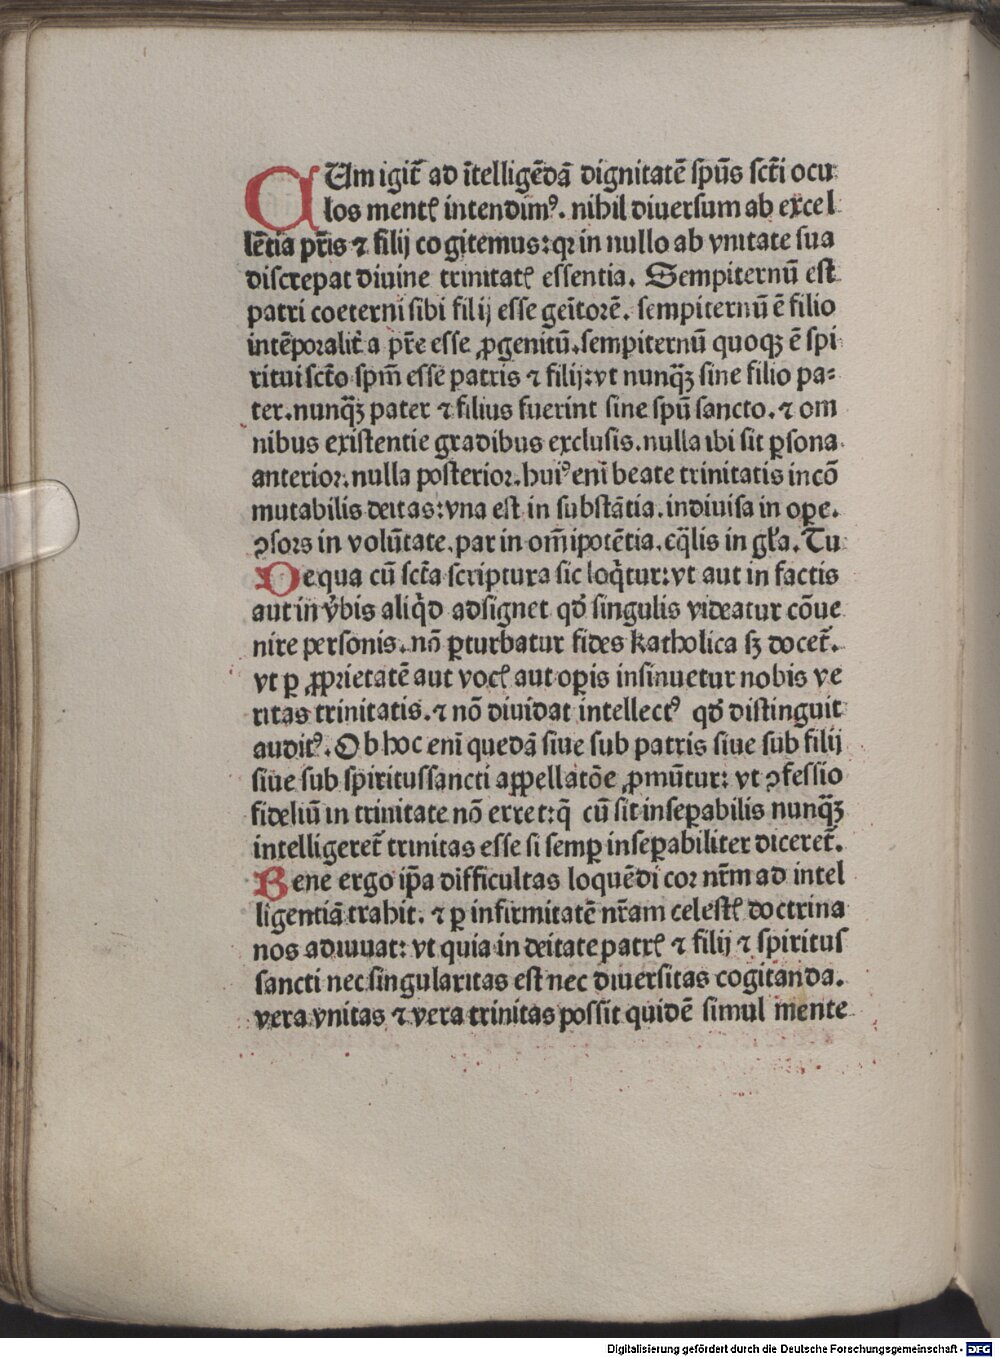 CUm igit̃ ad ĩtelligẽdã dignitatẽ spũs scti̅ ocu
los mentꝭ intendimꝰ. nihil diuersum ab excel
lẽtia pr̃is ⁊ filij cogitemus: qꝛ in nullo ab vnitate sua
discrepat diuine trinitatꝭ essentia. Sempiternũ est
patri coeterni sibi filij esse geĩtorẽ. sempiternũ ẽ filio
intẽporalit̃ a pr̃e esse ꝓgenitũ. sempiternũ quoqꝫ ẽ spi
ritui scto̅ spm̃ esse patris ⁊ filij: vt nunq̃ꝫ sine filio pa⸗
ter. nunq̃ꝫ pater ⁊ filius fuerint sine spũ sancto. ⁊ om
nibus existentie gradibus exclusis. nulla ibi sit ꝑsona
anterior. nulla posterior. huiꝰ eni̅ beate trinitatis incõ
mutabilis deitas: vna est in substãtia. indiuisa in oꝑe.
ꝯsors in volũtate. par in om̃ipotẽtia. eq̃lis in gl̃a. Tu
De qua cũ scta̅ scriptura sic loqͥtur: vt aut in factis
aut in v̾bis aliqͥd adsignet qd̾ singulis videatur cõue
nire personis. nõ ꝑturbatur fides katholica sꝫ docet̃.
vt ꝑ ꝓprietatẽ aut vocꝭ aut oꝑis insinuetur nobis ve
ritas trinitatis. ⁊ nõ diuidat intellectꝰ qd̾ distinguit
auditꝰ. Ob hoc eni̅ quedã siue sub patris siue sub filij
siue sub spiritussancti appellatõe ꝓmũtur: vt ꝯfessio
fideliũ in trinitate nõ erret: q̃ cũ sit inseꝑabilis nunq̃ꝫ
intelligeret̃ trinitas esse si semꝑ inseꝑabiliter diceret̃.
Bene ergo ip̃a difficultas loquẽdi cor nr̃m ad intel
ligentiã trahit. ⁊ ꝑ infirmitatẽ nr̃am celestꝭ doctrina
nos adiuuat: vt quia in deitate patrꝭ ⁊ filij ⁊ spiritus
sancti nec singularitas est nec diuersitas cogitanda.
vera vnitas ⁊ vera trinitas possit quidẽ simul mente
Digitalisierung gefördert durch die Deutsche Forschungsgemeinschaft - DFG